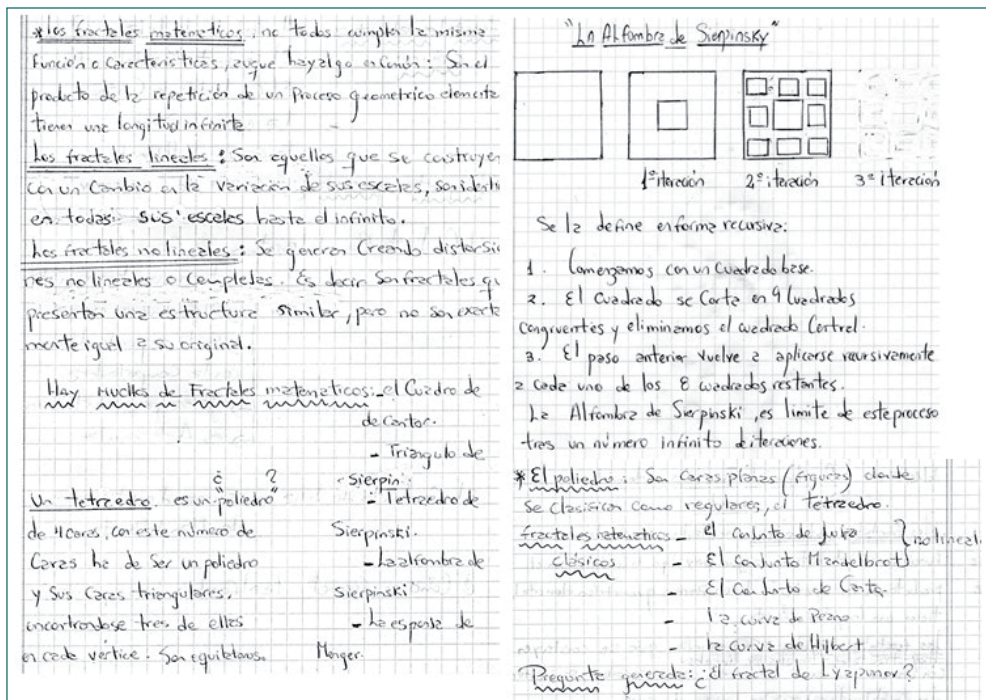 *Los fractales matematicos, no todos cumplen la misma
Función o Caracteristicas, auque hay algo en común: Son el
producto de la repetición de un Proceso geometrico elemental
tienen una longitud infinita
Los fractales lineales: Son aquellos que se construyen
con un Cambio en la variación de sus escalas, son
en todas sus escalas hasta el infinito.
Los fractales no lineales: Se generan Creando distorsio
nes no lineales o Complejas. Es decir Son fractales qu
presentan una estructura similar, pero no son exacta
mente igual a su original.
Hay Muchos de Fractales matematicos: el Cuadro de
de Cantor.
- Triangulo de
Sierpin
- Tetraedro de
Sierpinski.
- La alfombra de
Sierpinski
- La esponja de
Menger.
¿ ?
Un tetraedro es un "poliedro"
de 4 caras, con este número de
Caras ha de Ser un poliedro
y Sus Caras triangulares,
encontrandose tres de ellas
en cada vértice. Son equilateros.
"La Alfombra de Sierpinsky"
1º iteración 2º iteración 3º iteración
Se la define en forma recursiva:
1. Comenzamos con un Cuadrado base.
2. El Cuadrado se Corta en 9 Cuadrados
congruentes y eliminamos el cuadrado Central.
3. El paso anterior vuelve a aplicarse recursivamente
a cada uno de los 8 cuadrados restantes.
La Alfombra de Sierpinski, es limite de este proceso
tras un número infinito de iteraciones.
*El poliedro: Son Caras planas (figuras) donde
Se clasifican como regulares, el tetraedro.
fractales matematicos - el conjunto de Julia } no lineal.
clásicos - El conjunto Mandelbrot
- El Conjunto de Canto
- la curva de Peano
- la curva de Hilbert
Pregunta generada: ¿el fractal de Lyapunov?